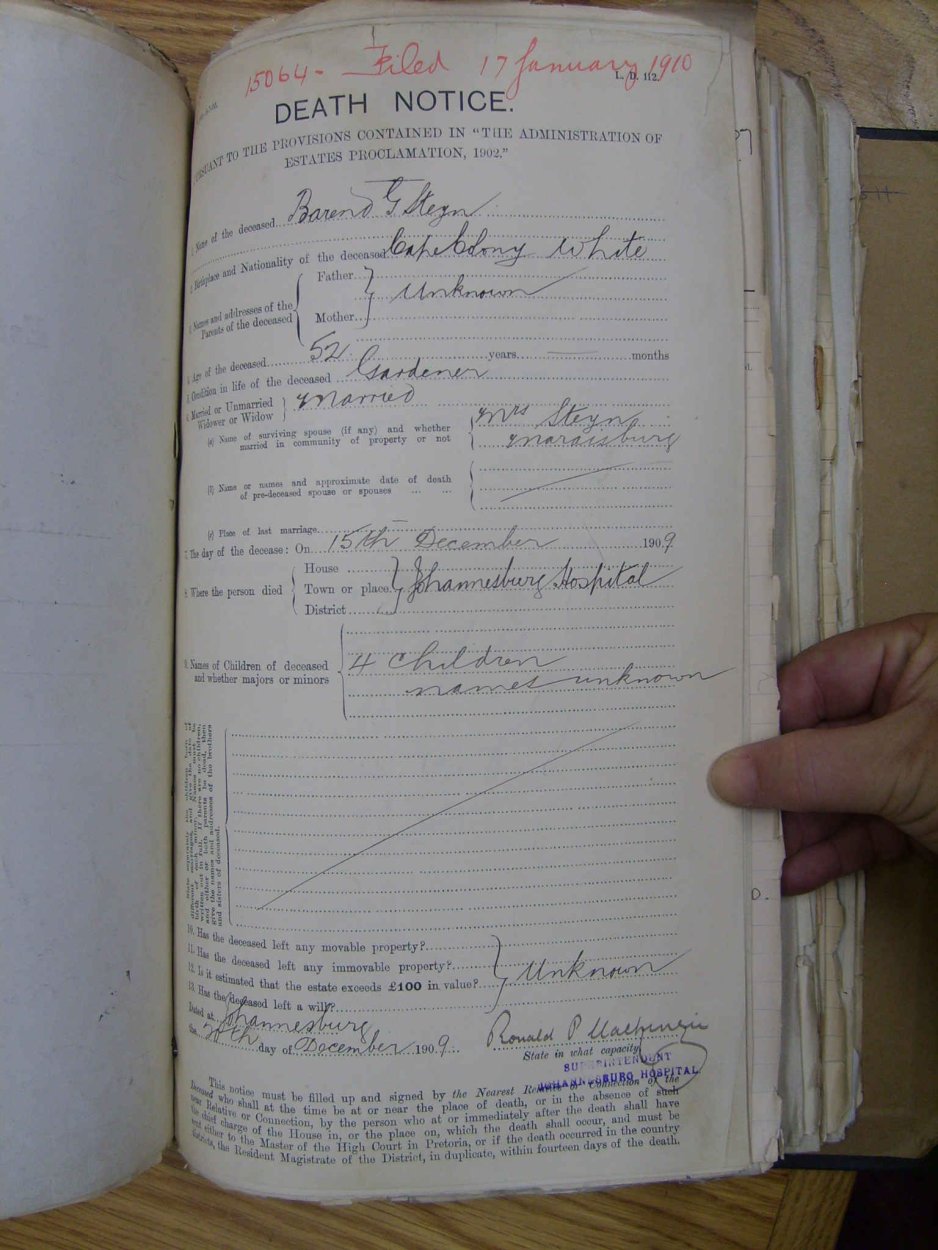 15064 - Filed 17 January 1910
L. D. 112.
DEATH NOTICE.
PURSUANT TO THE PROVISIONS CONTAINED IN "THE ADMINISTRATION OF
ESTATES PROCLAMATION, 1902."
1. Name of the deceased Barend G Steyn
2. Birthplace and Nationality of the deceased Cape Colony White
3. Names and addresses of the Parents of the deceased
Father
Unknown
Mother
4. Age of the deceased 52 years — months
5. Condition in life of the deceased Gardener
6. Married or Unmarried Widower or Widow Married
(a) Name of surviving spouse (if any) and whether married in community of property or not
Mrs Steyn
Maraisburg
(b) Name or names and approximate date of death of pre-deceased spouse or spouses ... ...
(c) Place of last marriage —
7. The day of the decease: On 15th December 1909
8. Where the person died
House
Town or place Johannesburg Hospital
District
9. Names of Children of deceased and whether majors or minors
4 children
names unknown
written out in full. If there are no children,
and either or both parents be dead, then
give the names and addresses of the brothers
and sisters of deceased.
10. Has the deceased left any movable property?
11. Has the deceased left any immovable property?
Unknown
12. Is it estimated that the estate exceeds £100 in value?
13. Has the deceased left a will?
Dated at Johannesburg
the 20th day of December 1909.
Ronald P Mackenzie
State in what capacity
SUPERINTENDENT
JOHANNESBURG HOSPITAL
This notice must be filled up and signed by the Nearest Relative or Connection of the
Deceased who shall at the time be at or near the place of death, or in the absence of such
near Relative or Connection, by the person who at or immediately after the death shall have
the chief charge of the House in, or the place on, which the death shall occur, and must be
sent either to the Master of the High Court in Pretoria, or if the death occurred in the country
districts, the Resident Magistrate of the District, in duplicate, within fourteen days of the death.